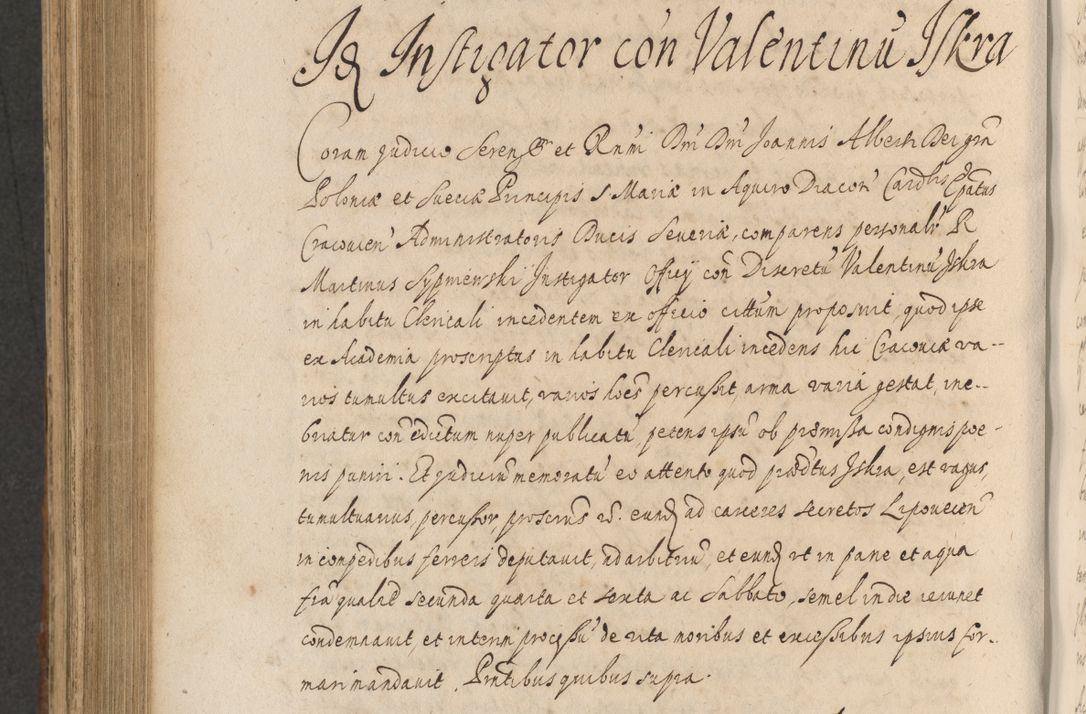 Idē Instigator con̄ Valentinū Iskra
Coram judicio Seren: et Rn̄mi Dn̄i Dn̄i Joannis Alberti Dei grā
Poloniæ et Sueciæ Principis S Mariæ in Aquiro Diacon̄ Cardlis Epatus
Cracovien̄ Administratoris Ducis Severiæ, comparens personalr̄ R
Martinus Instigator Officij con̄ Discretū Valentinū Iskra
in habitu Clericali incedentem ex officio cittūm proposuit, quod ipse
ex Academia proscriptus in habitu Clericali incedens hic Cracoviæ va--
rios tumultus excitavit, varios hoēs percussit, arma varia gestat, ine--
briatur con̄ edictum nuper publicatū, petens ipsū ob præmissa condignis poe-
nis puniri. Et judiciū memoratū eo attento quod prædtus Iskra, est vagus,
tumultuarius, percussor, eundē ad carceres secretos Lipovecen̄
in compedibus ferreis deputavit, ad arbitriū, et eundē ut in pane et aqua
secunda quarta et sexta ac Sabbato, semel in die ieiunet
condemnavit, et interim processū de vita moribus et excessibus ipsius for--
mari mandavit. Prn̄tibus quibus supra.